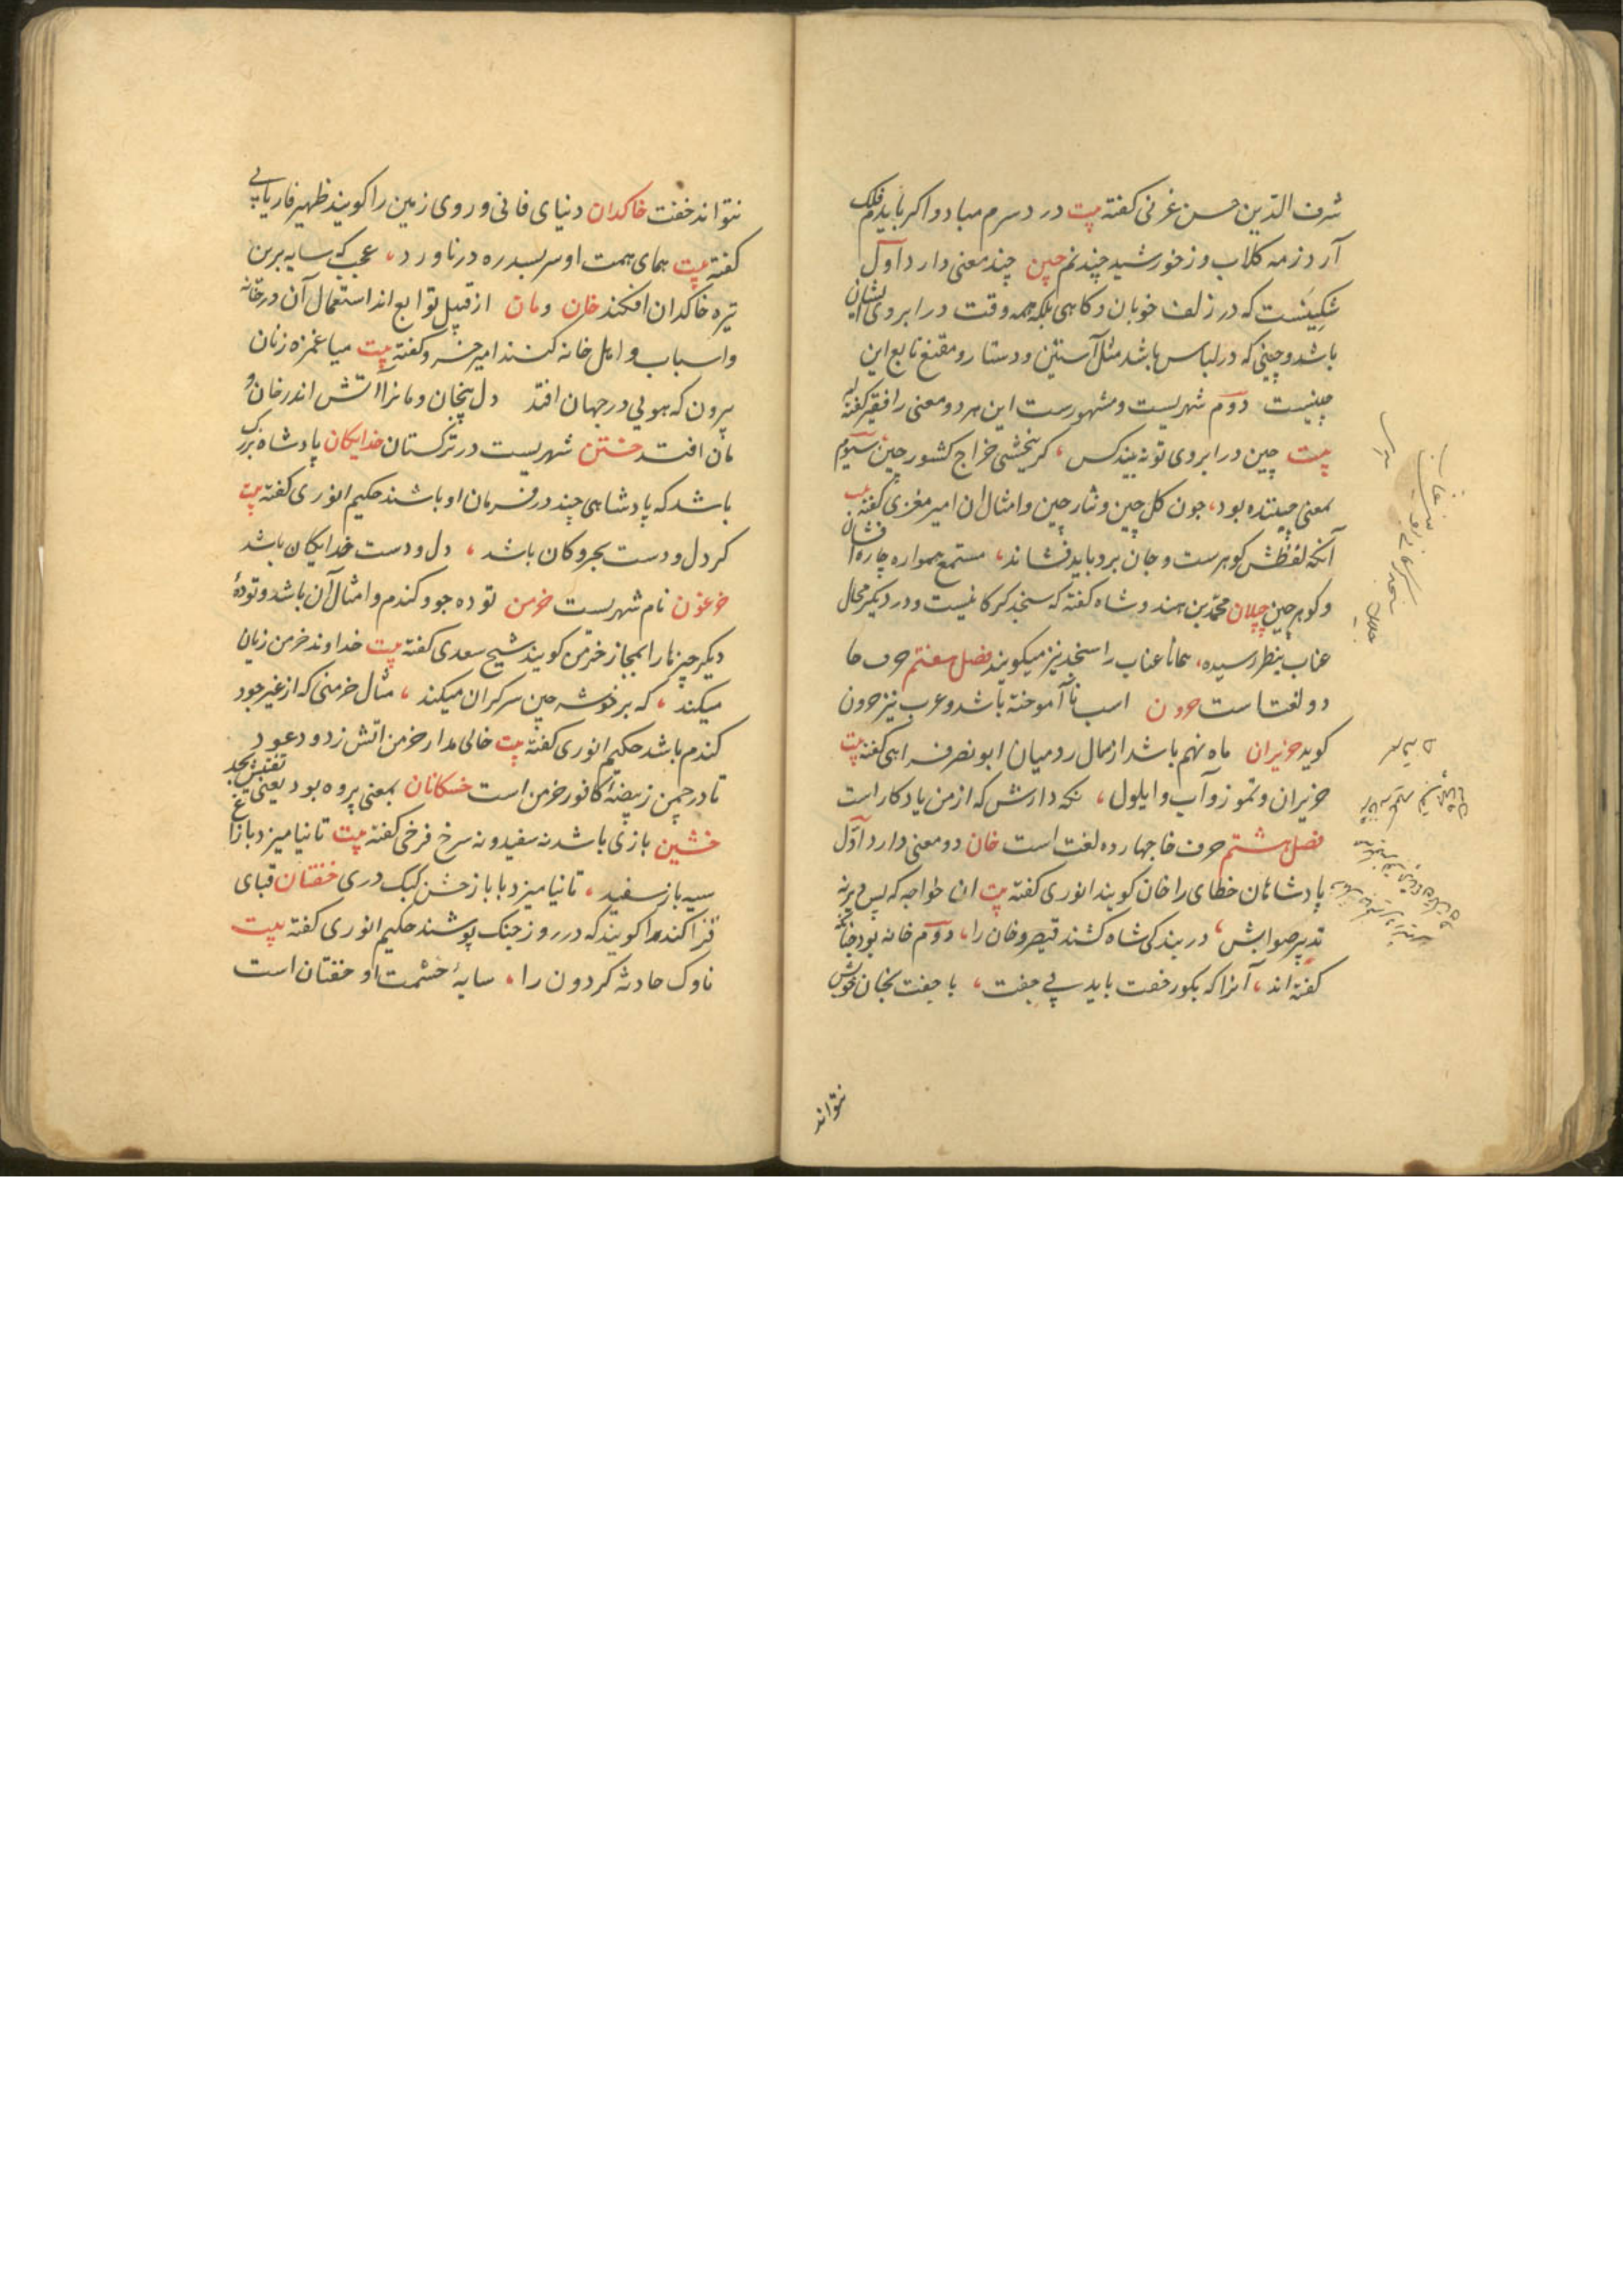 شرف الدین حسن غزنی کفته بیت در دسرم مباد و اکر بایدم فلک
آرد ز مه کلاب و ز خورشید چندنم چین چند معنی دارد اول
شکینست که در زلف خوبان و کاهی بلکه همه وقت در ابروی ایشان
باشد و چینی که در لباس باشد مثل آستین و دستار و مقنع تابع این
چینست دوم شهریست و مشهورست این هر دو معنی را فقیر کفته
بیت چین در ابروی تو نه بیند کس، کر ببخشی خراج کشور چین سیوم
بمعنی چیننده بود، جون کل چین و نثار چین و امثال ان امیر مغزی کفته
آنکه لفظش کوهرست و جان برد باید فشاند، مستمع همواره چاره فشان
و کوهر چین چیلان محمد بن هندوشاه کفته که سنجد کرکانیست و در دیکر محال
عناب بنظر رسیده، همانا عناب را سنجد نیز میکویند فصل هفتم حرف حا
دو لغت است حرون اسب نا آموخته باشد و عرب نیز حرون
کوید حزیران ماه نهم باشد از سال رومیان ابو نصر فراهی کفته بیت
حزیران و تموز و آب و ایلول، نکه دارش که از من یادکار است
فصل هشتم حرف خا جهارده لغت است خان دو معنی دارد اول
پادشاهان خطای را خان کویند انوری کفته بیت ان خواجه که بس دیر نه
تدبیر صوابش، در بندکی شاه کشند قیصر و خان را، دوم خانه بود جنانکه
کفته اند، آنرا که بکور خفت باید بی جفت، با جفت بخان خویش
نتواند
نتواند خفت خاکدان دنیای فانی و روی زمین را کویند ظهیر فاریابی
کفته بیت همای همت او سر بسدره در ناورد، عجب که سایه برین
تیره خاکدان افکند خان و مان از قبیل توابع اند استعمال آن در خانه
و اسباب و اهل خانه کنند امیر خسرو کفته بیت میا غمزه زنان
بیرون که هویی در جهان افتد دل بیخان و مانرا آتش اندر خان و
مان افتد ختن شهریست در ترکستان خدایکان پادشاه بزرک
باشد که پادشاهی چند در فرمان او باشند حکیم انوری کفته بیت
کر دل و دست بحر و کان باشد، دل و دست خدایکان باشد
خرغون نام شهریست خرمن توده جو و کندم و امثال آن باشد و تودهٔ
دیکر چیزها را بمجاز خرمن کویند شیخ سعدی کفته بیت خداوند خرمن زیان
میکند، که بر خوشه چین سرکران میکند، مثال خرمنی که از غیر جو و
کندم باشد حکیم انوری کفته بیت خالی مدار خرمن اتش ز دود عود
تا در چمن ز بیضهٔ کافور خرمن است خسکانان بمعنی پروه بود یعنی تفتیش بجد
خشین بازی باشد نه سفید و نه سرخ فرخی کفته بیت تا نیامیزد با زاغ
سیه باز سفید، تا نیامیزد با باز خشن کبک دری خفتان قبای
قزاکند را کویند که در روز جنک پوشند حکیم انوری کفته بیت
ناوک حادثه کردون را، سایهٔ حشمت او خفتان است